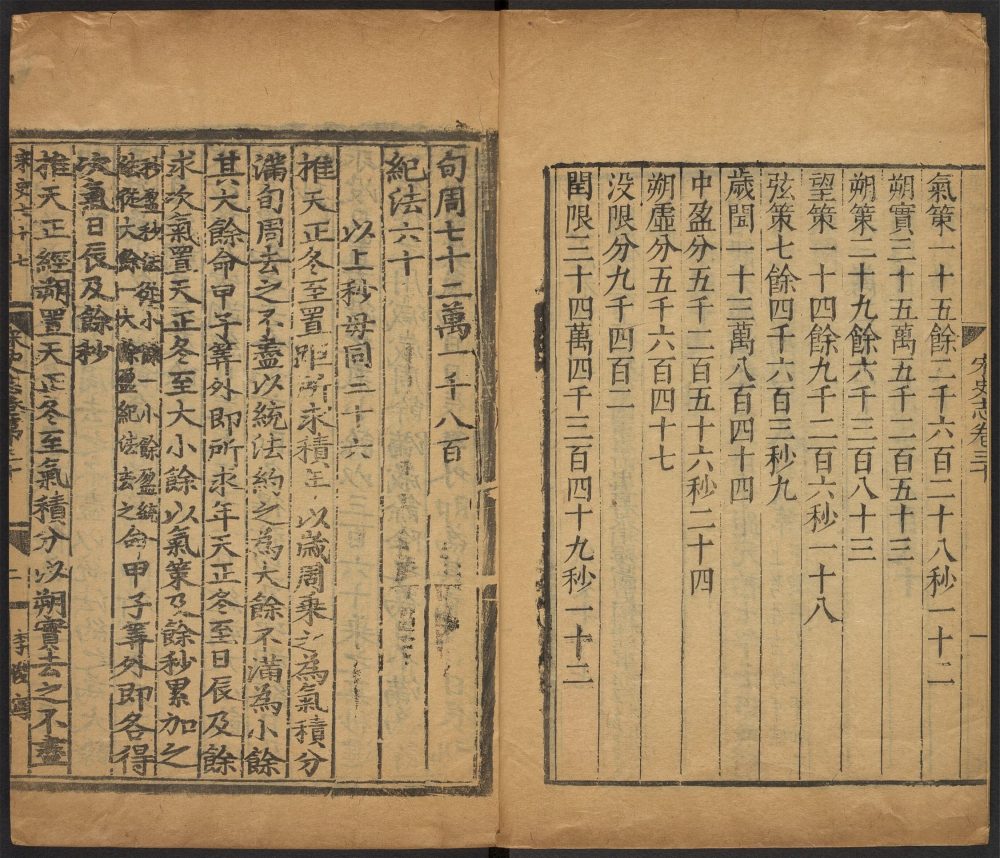 氣策一十五餘二千六百二十八秒一十二
朔實三十五萬五千二百五十三
朔策二十九餘六千三百八十三
望策一十四餘九千二百六秒一十八
弦策七餘四千六百三秒九
歲閏一十三萬八百四十四
中盈分五千二百五十六秒二十四
朔虛分五千六百四十七
没限分九千四百二
閏限三十四萬四千三百四十九秒一十二
宋史志卷三十
一
旬周七十二萬一千八百
紀法六十
以上秒母同三十六
推天正冬至置距所求積年以歲周乘之為氣積分
滿旬周去之不盡以統法約之為大餘不滿為小餘
其大餘命甲子筭外即所求年天正冬至日辰及餘
求次氣置天正冬至大小餘以氣策及餘秒累加之
秒盈秒法從小餘一小餘盈統
法從大餘一大餘盈紀法去之
命甲子筭外即各得
次氣日辰及餘秒
推天正經朔置天正冬至氣積分以朔實去之不盡
宋史七十七
二
李